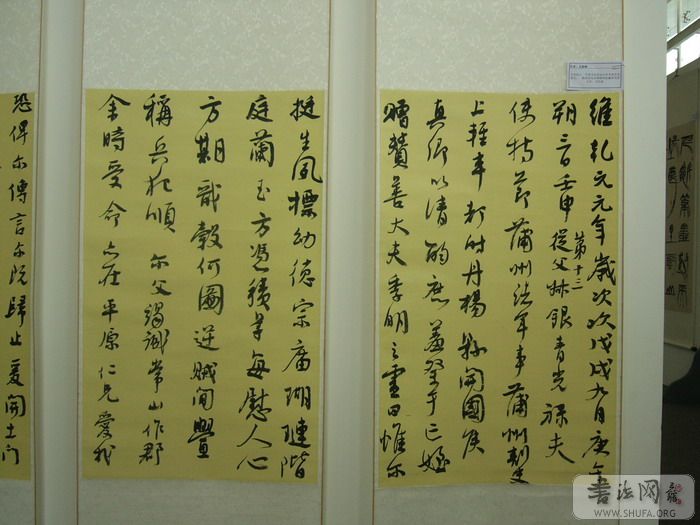 維乾元元年歲次次戊戌九月庚午
第十三
朔三日壬申從父叔銀青光祿夫
使持節蒲州諸軍事蒲州刺史
上輕車都尉丹楊縣開國侯
真卿以清酌庶羞祭于亡姪
贈贊善大夫季明之靈曰惟爾
挺生夙標幼德宗廟瑚璉階
庭蘭玉方憑積善每慰人心
方期戩穀何圖逆賊閒釁
稱兵犯順爾父竭誠常山作郡
余時受命亦在平原仁兄愛我
恐俾爾傳言爾既歸止爰開土門
書法网
WWW.SHUFA.ORG